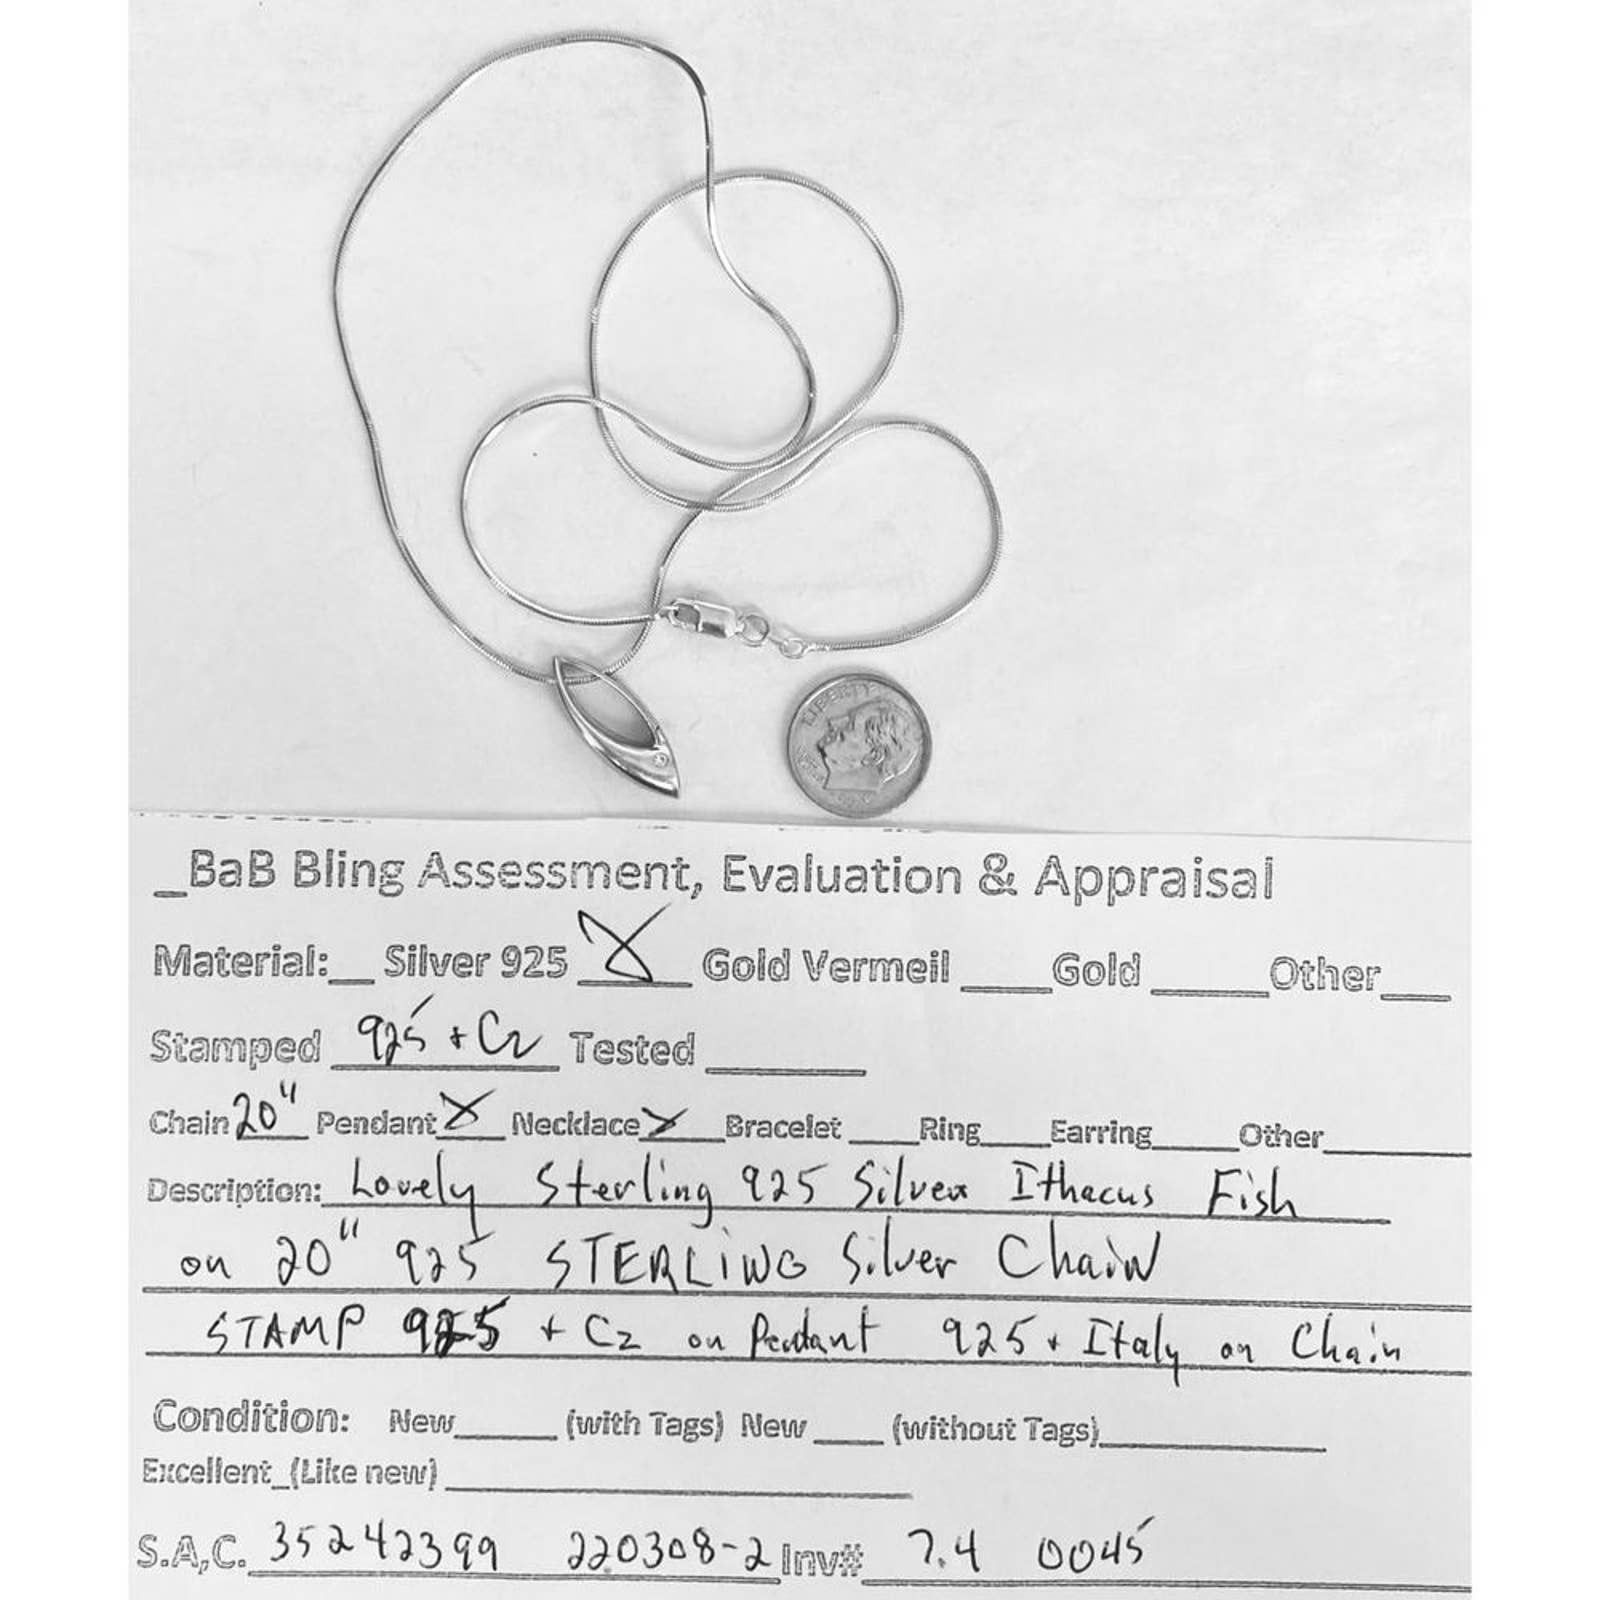 LIBERTY
_BaB Bling Assessment, Evaluation & Appraisal
Material:__ Silver 925 X Gold Vermeil ____ Gold _____ Other ___
Stamped 925 + Cz Tested ________
Chain 20" Pendant X Necklace X Bracelet ____ Ring ___ Earring ____ Other ________
Description: Lovely Sterling 925 Silver Ithacus Fish
on 20" 925 STERLING Silver Chain
STAMP 925 + Cz on Pendant 925 + Italy on Chain
Condition: New _____ (with Tags) New ___ (without Tags) ___________
Excellent_(Like new) ______________________
S.A,C. 35242399 220308-2 Inv# 7.4 0045